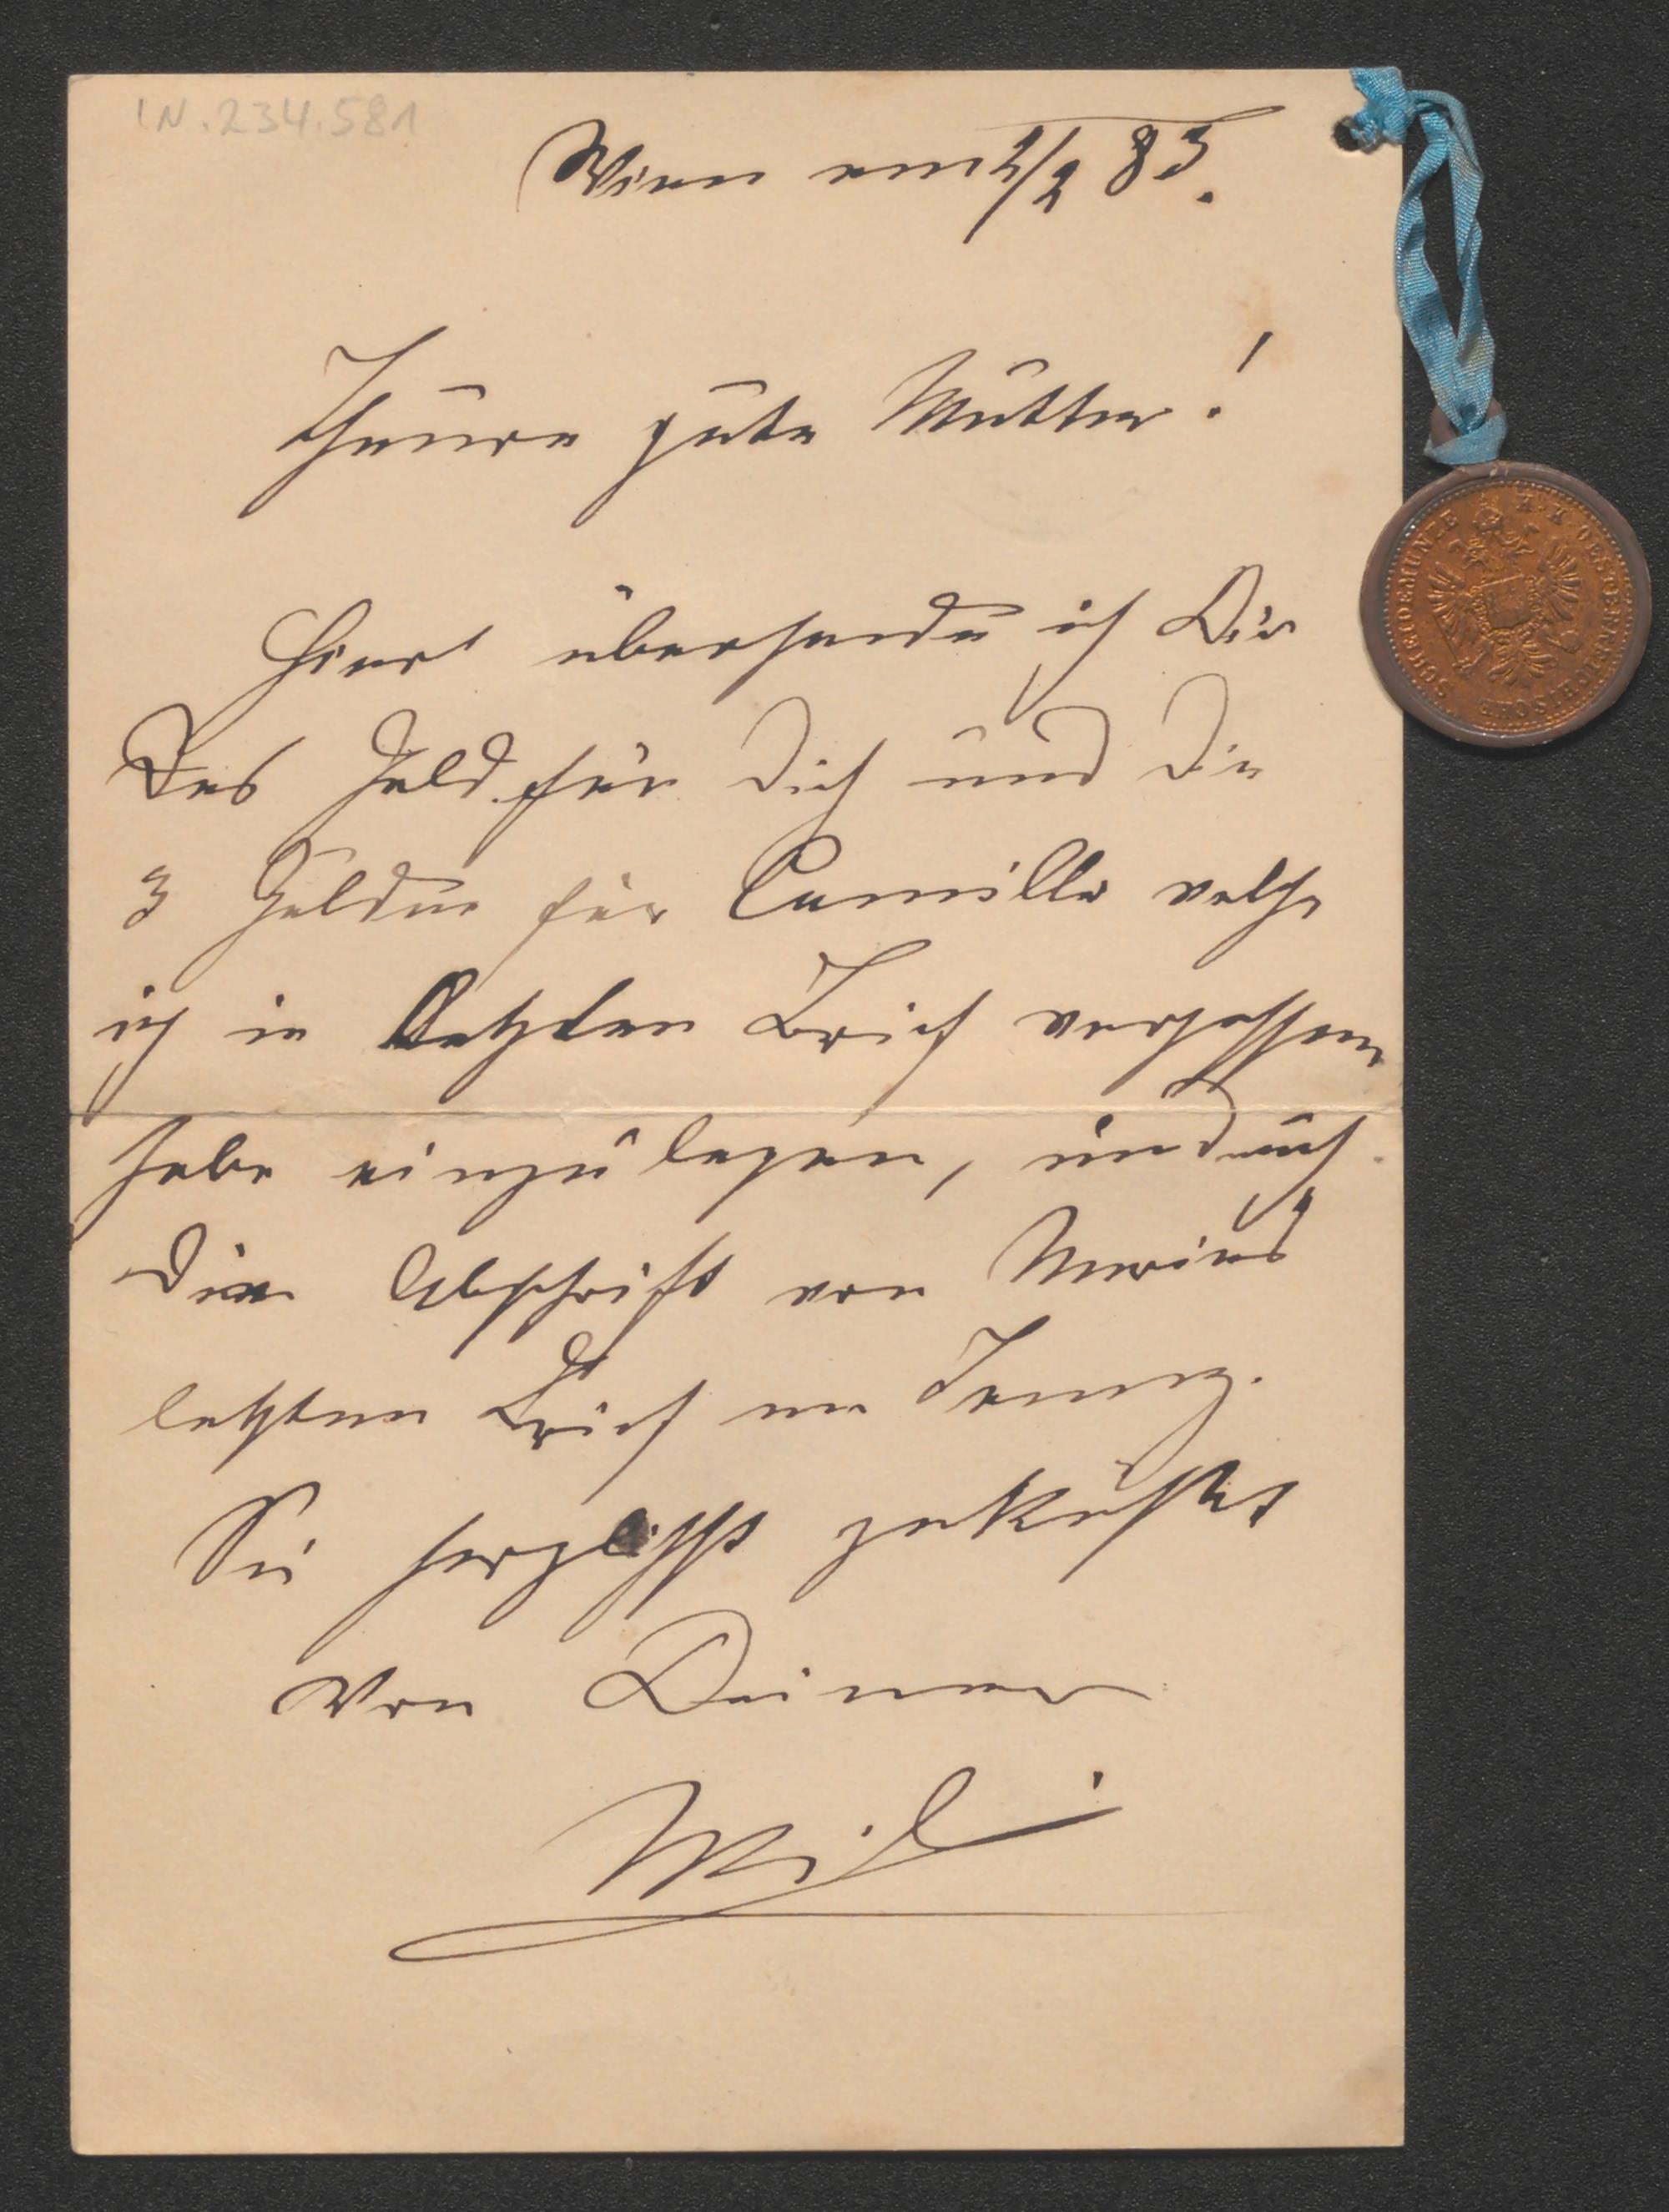 IN.234.581
Wien am 2/2 83.
Theure gute Mutter!
Hier übersende ich Dir
Das Geld für Dich und die
3 Gulden für Camilla welche
ich in letzten Brief vergessen
habe einzulegen, und auch
die Abschrift von
letzten Brief an Jenny.
Sei herzlichst geküßt
von Deinem
SCHEIDEMÜNZE K·K OESTERREICHISCHE